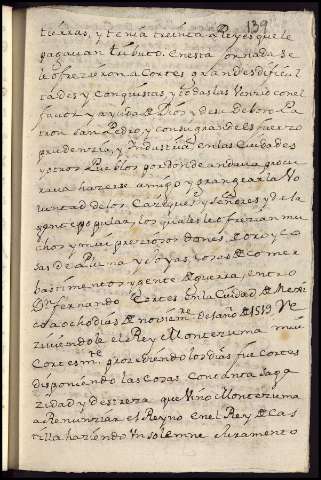 139
tierras, y tenia treinta Reyes que le
pagavan tributo. En esta jornada se
le ofrezieron a Cortes grandes dificul
tades y Conquistas, y todas las Venzio con el
favor y ayuda de Dios y de su devoto Pa
tron San Pedro, y con su grande esfuerzo
prudenzia, y Industria, en las Ciudades
y otros Pueblos por donde andava procu
rava hazerse amigo y grangear la Vo
luntad de los Caziques y Señores y de la
gente popular, los quales le ofrezian mu
chos y muy preziosos dones, de oro y co
sas de Pluma y joyas, cosas de comer
bastimentos y gente de guerra, entro
Dn. fernando Cortes en la Ciudad de Mexi
co a ocho dias de noviemre. del año de 1519 Re
ziviendole el Rey Montezuma mui
Cortesmte. prozediendo los dias fue Cortes
disponiendo las cosas con tanta saga
zidad y destreza que Vino Montezuma
a Renunziar el Reyno en el Rey de Cas
tilla haziendo Un solemne Juramento